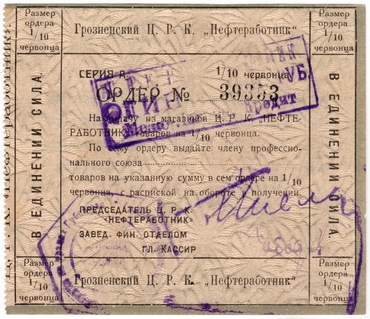 Размер
ордера
1/10
червонца
Грозненский Ц. Р. К. „Нефтеработник"
Размер
ордера
1/10
червонца
СЕРИЯ А
1/10 червонца
ОРДЕР № 39353
На выдачу из магазинов Ц. Р. К. „НЕФТЕ-
РАБОТНИК" товаров на 1/10 червонца.
По сему ордеру выдайте члену профессио-
нального союза
товаров на указанную сумму в сем ордере на 1/10
червонца, с распиской на обороте в получении.
ПРЕДСЕДАТЕЛЬ Ц. Р. К.
«НЕФТЕРАБОТНИК»
ЗАВЕД. ФИН. ОТДЕЛОМ
ГЛ. КАССИР
В ЕДИНЕНИИ СИЛА.
В ЕДИНЕНИИ СИЛА.
Размер
ордера
1/10
червонца
Грозненский Ц. Р. К. „Нефтеработник"
Размер
ордера
1/10
червонца